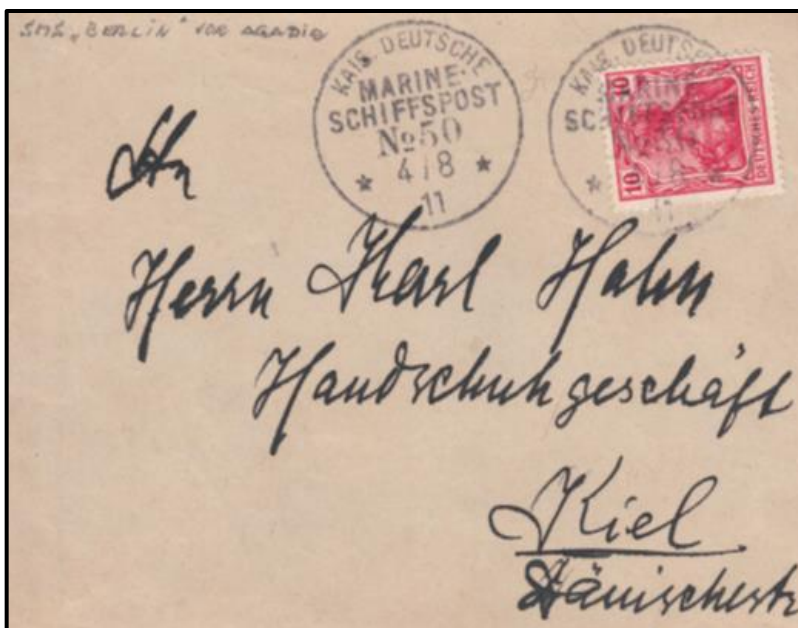 SMS „BERLIN" VOR AGADIR
KAIS. DEUTSCHE
MARINE-
SCHIFFSPOST
No 50
4/8
11
KAIS. DEUTSCHE
MARINE-
SCHIFFSPOST
No 50
4/8
11
10
10
DEUTSCHES REICH
An
Herrn Karl Hahn
Handschuhgeschäft
Kiel
Dänischestr